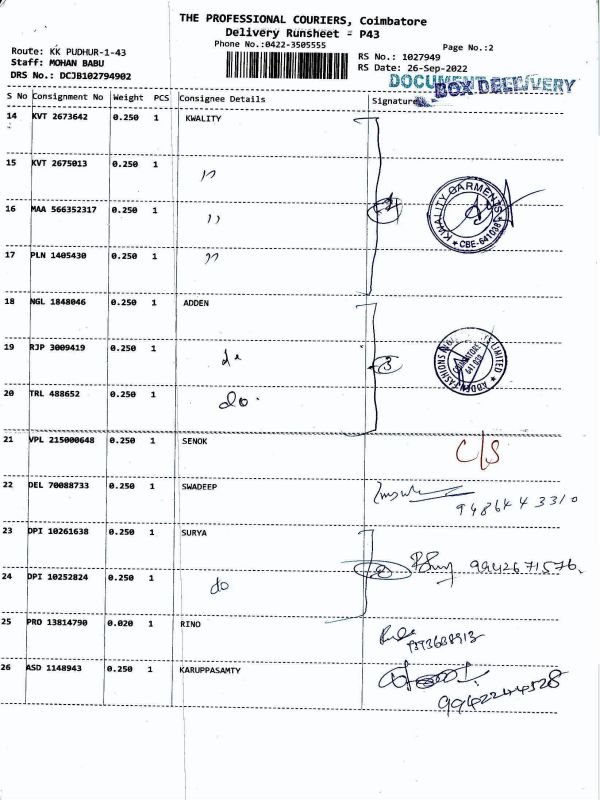 THE PROFESSIONAL COURIERS, Coimbatore
Delivery Runsheet - P43
Phone No.:0422-3505555
Page No.:2
Route: KK PUDHUR-1-43
Staff: MOHAN BABU
DRS No.: DCJB102794902
RS No.: 1027949
RS Date: 26-Sep-2022
DOCUMENT DELIVERY
BOX DELIVERY
S No Consignment No Weight PCS Consignee Details Signature
14 KVT 2673642 0.250 1 KWALITY
15 KVT 2675013 0.250 1 "
16 MAA 566352317 0.250 1 " 4
KWALITY GARMENTS
* CBE-641038 *
17 PLN 1405430 0.250 1 "
18 NGL 1848046 0.250 1 ADDEN
19 RJP 3009419 0.250 1 do 3
ADDEN FASHIONS LIMITED
COIMBATORE
641 038
20 TRL 488652 0.250 1 do.
21 VPL 215000648 0.250 1 SENOK C/S
22 DEL 70088733 0.250 1 SWADEEP
9486443310
23 DPI 10261638 0.250 1 SURYA
2 9942671576.
24 DPI 10252824 0.250 1 do
25 PRO 13814790 0.020 1 RINO
26 ASD 1148943 0.250 1 KARUPPASAMTY
9942244528